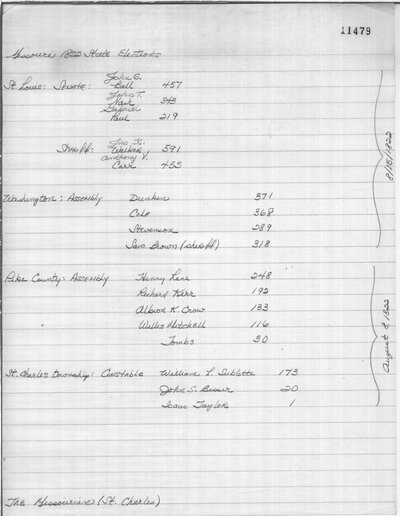 11479
Missouri 1822 State Elections
St. Louis: Senate: John S. Ball 457
John T. Nash 343
Gabriel Paul 219
Sheriff: Jno. K. Walker 591
Anthony V. Carr 455
8/15/1822
Washington: Assembly Dunkin 371
Cole 368
Stevenson 289
Sam Brown (sheriff) 318
Pike County: Assembly Henry Lane 248
Richard Kerr 192
Albion K. Crow 133
Willis Mitchell 116
Tombs 30
St. Charles township: Constable William L. Sublette 173
John S. Besser 20
Isaac Taylor 1
August 8, 1822
The Missourian (St. Charles)